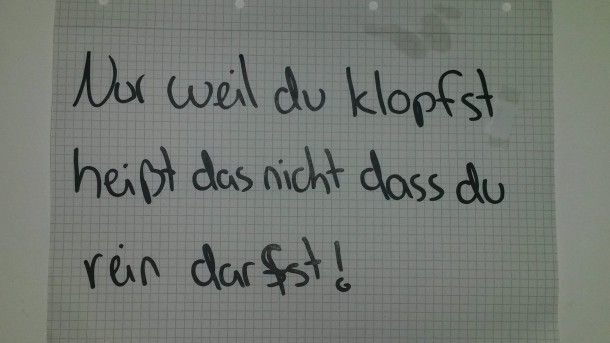 Nur weil du klopfst
heißt das nicht dass du
rein darfst!